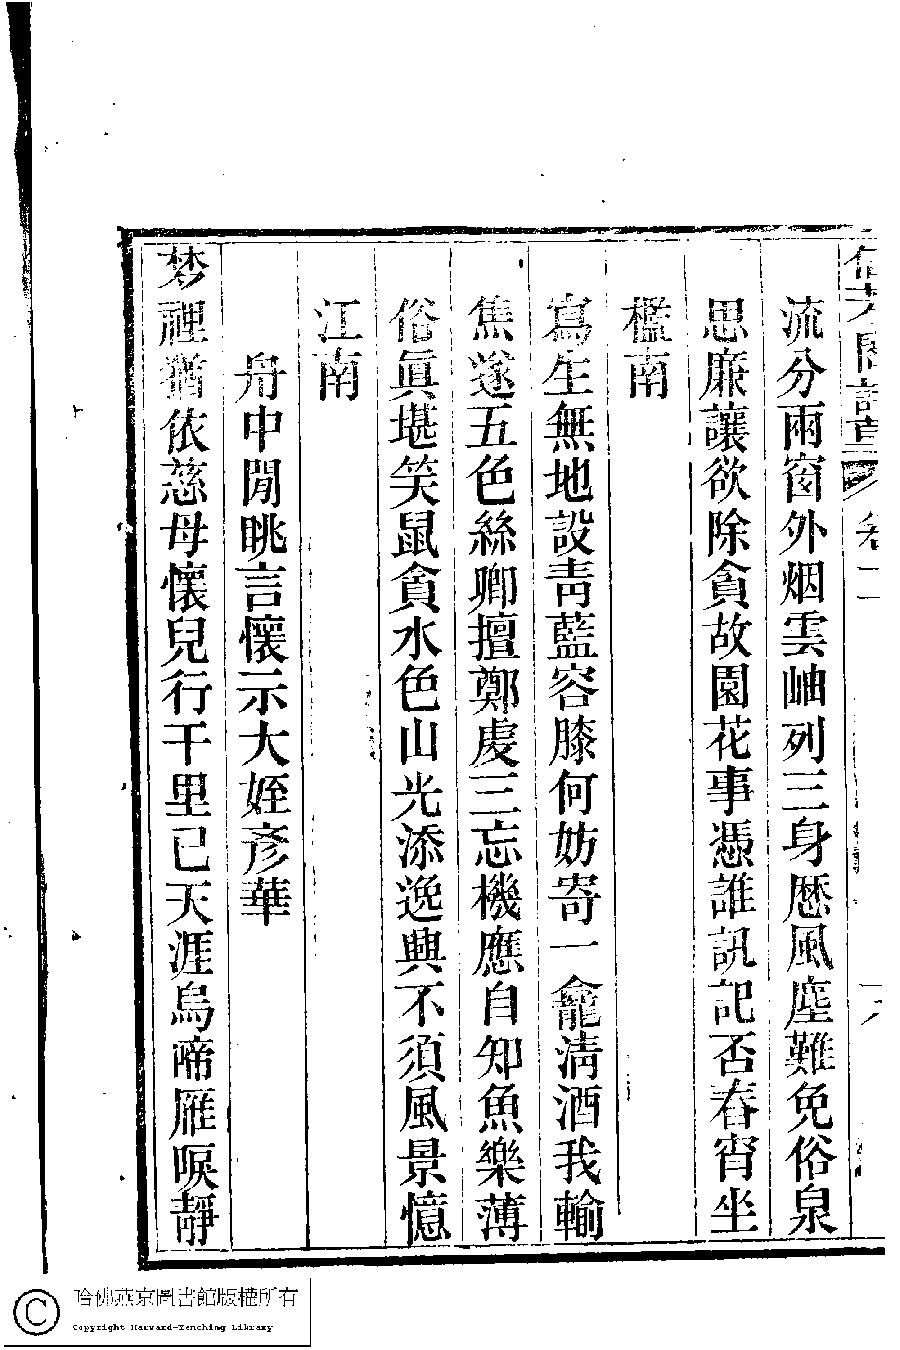 信芳閣詩草 卷二
流分兩窗外烟雲岫列三身歷風塵難免俗泉
思廉讓欲除貪故園花事憑誰訊記否春宵坐
檻南
寫生無地設青藍容膝何妨寄一龕清酒我輸
焦遂五色絲卿擅鄭虔三忘機應自知魚樂薄
俗眞堪笑鼠貪水色山光添逸興不須風景憶
江南
舟中閒眺言懷示大姪彥華
梦裡猶依慈母懷兒行千里已天涯烏啼雁唳靜
哈佛燕京圖書館版權所有
Copyright Harvard-Yenching Library